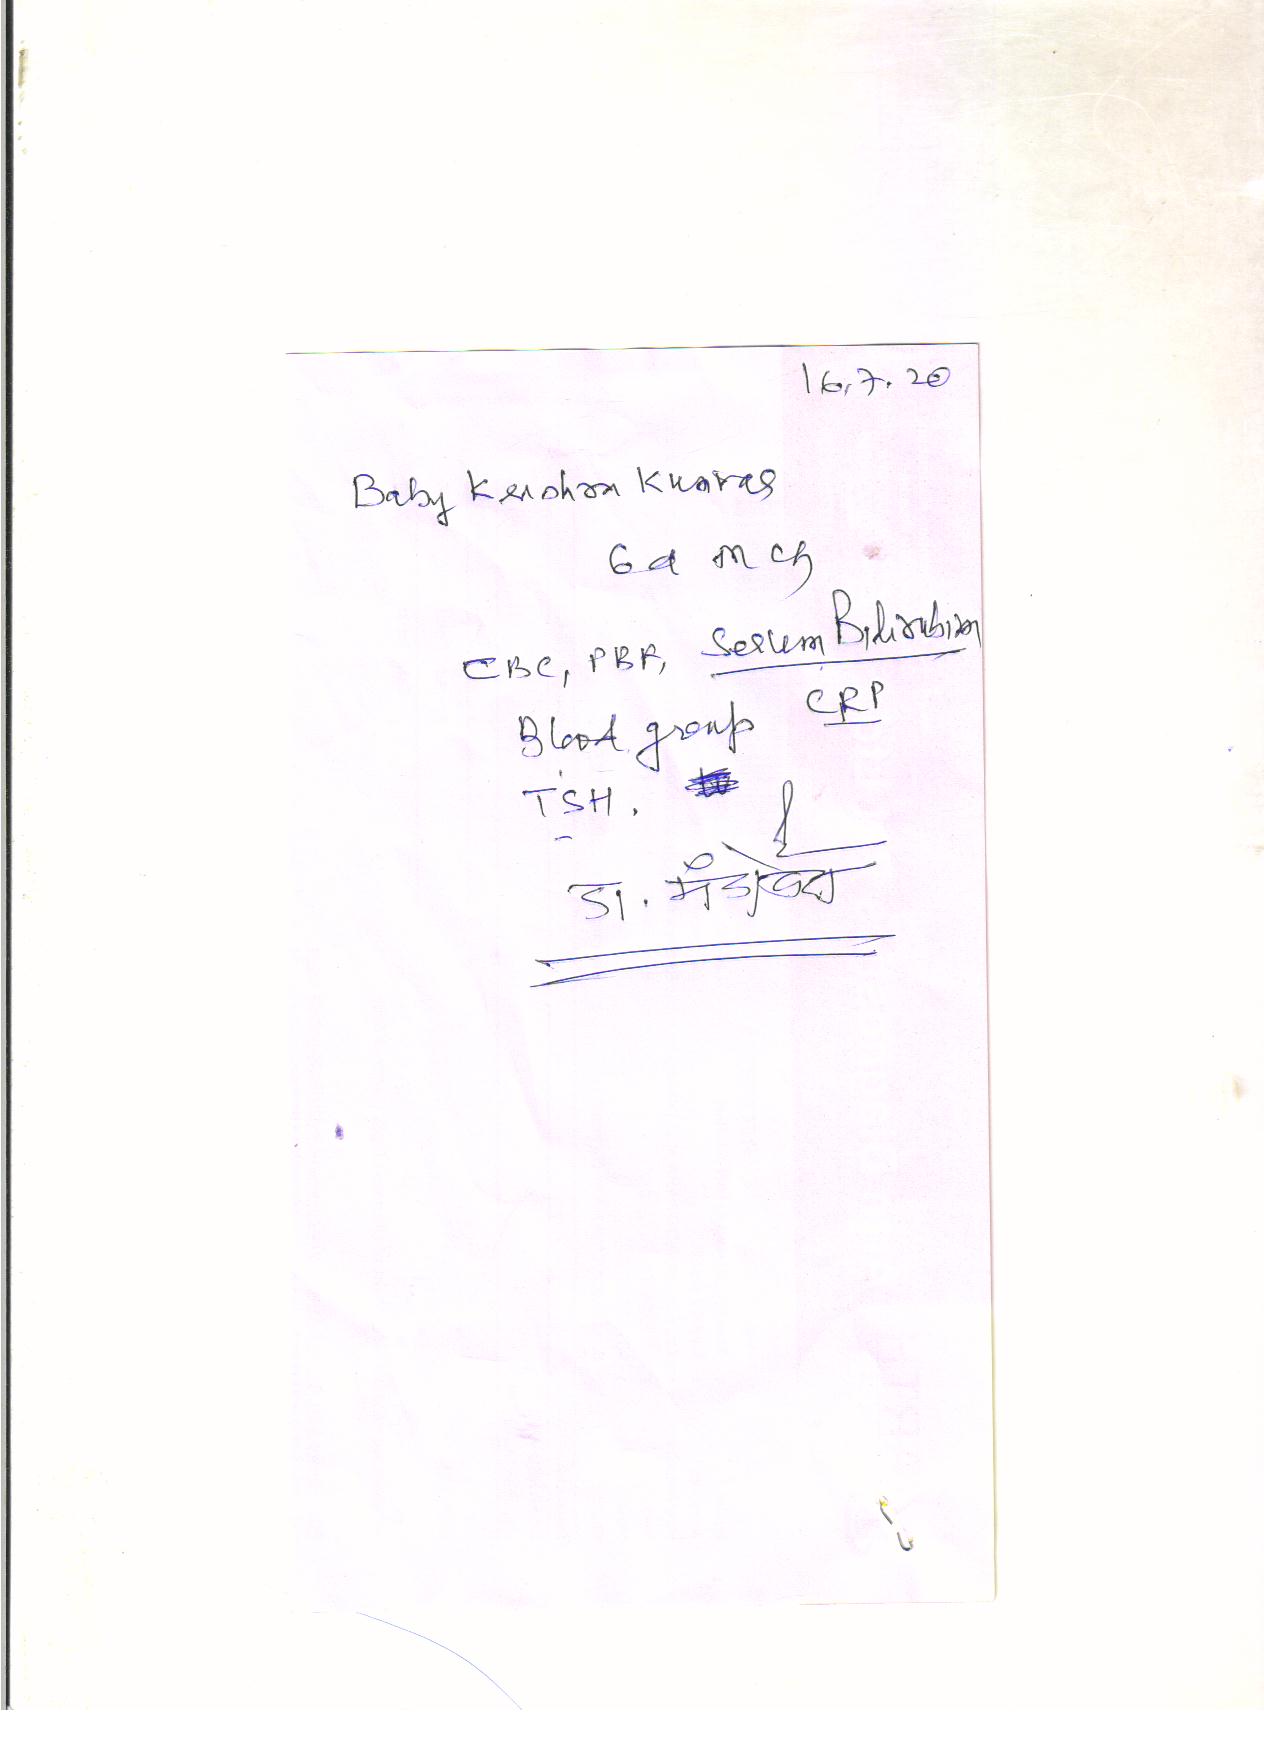 16.7.20
Baby Krishan Kumar
6d M ch
CBC, PBF, Serum Bilirubin
Blood group CRP
TSH.
डा.